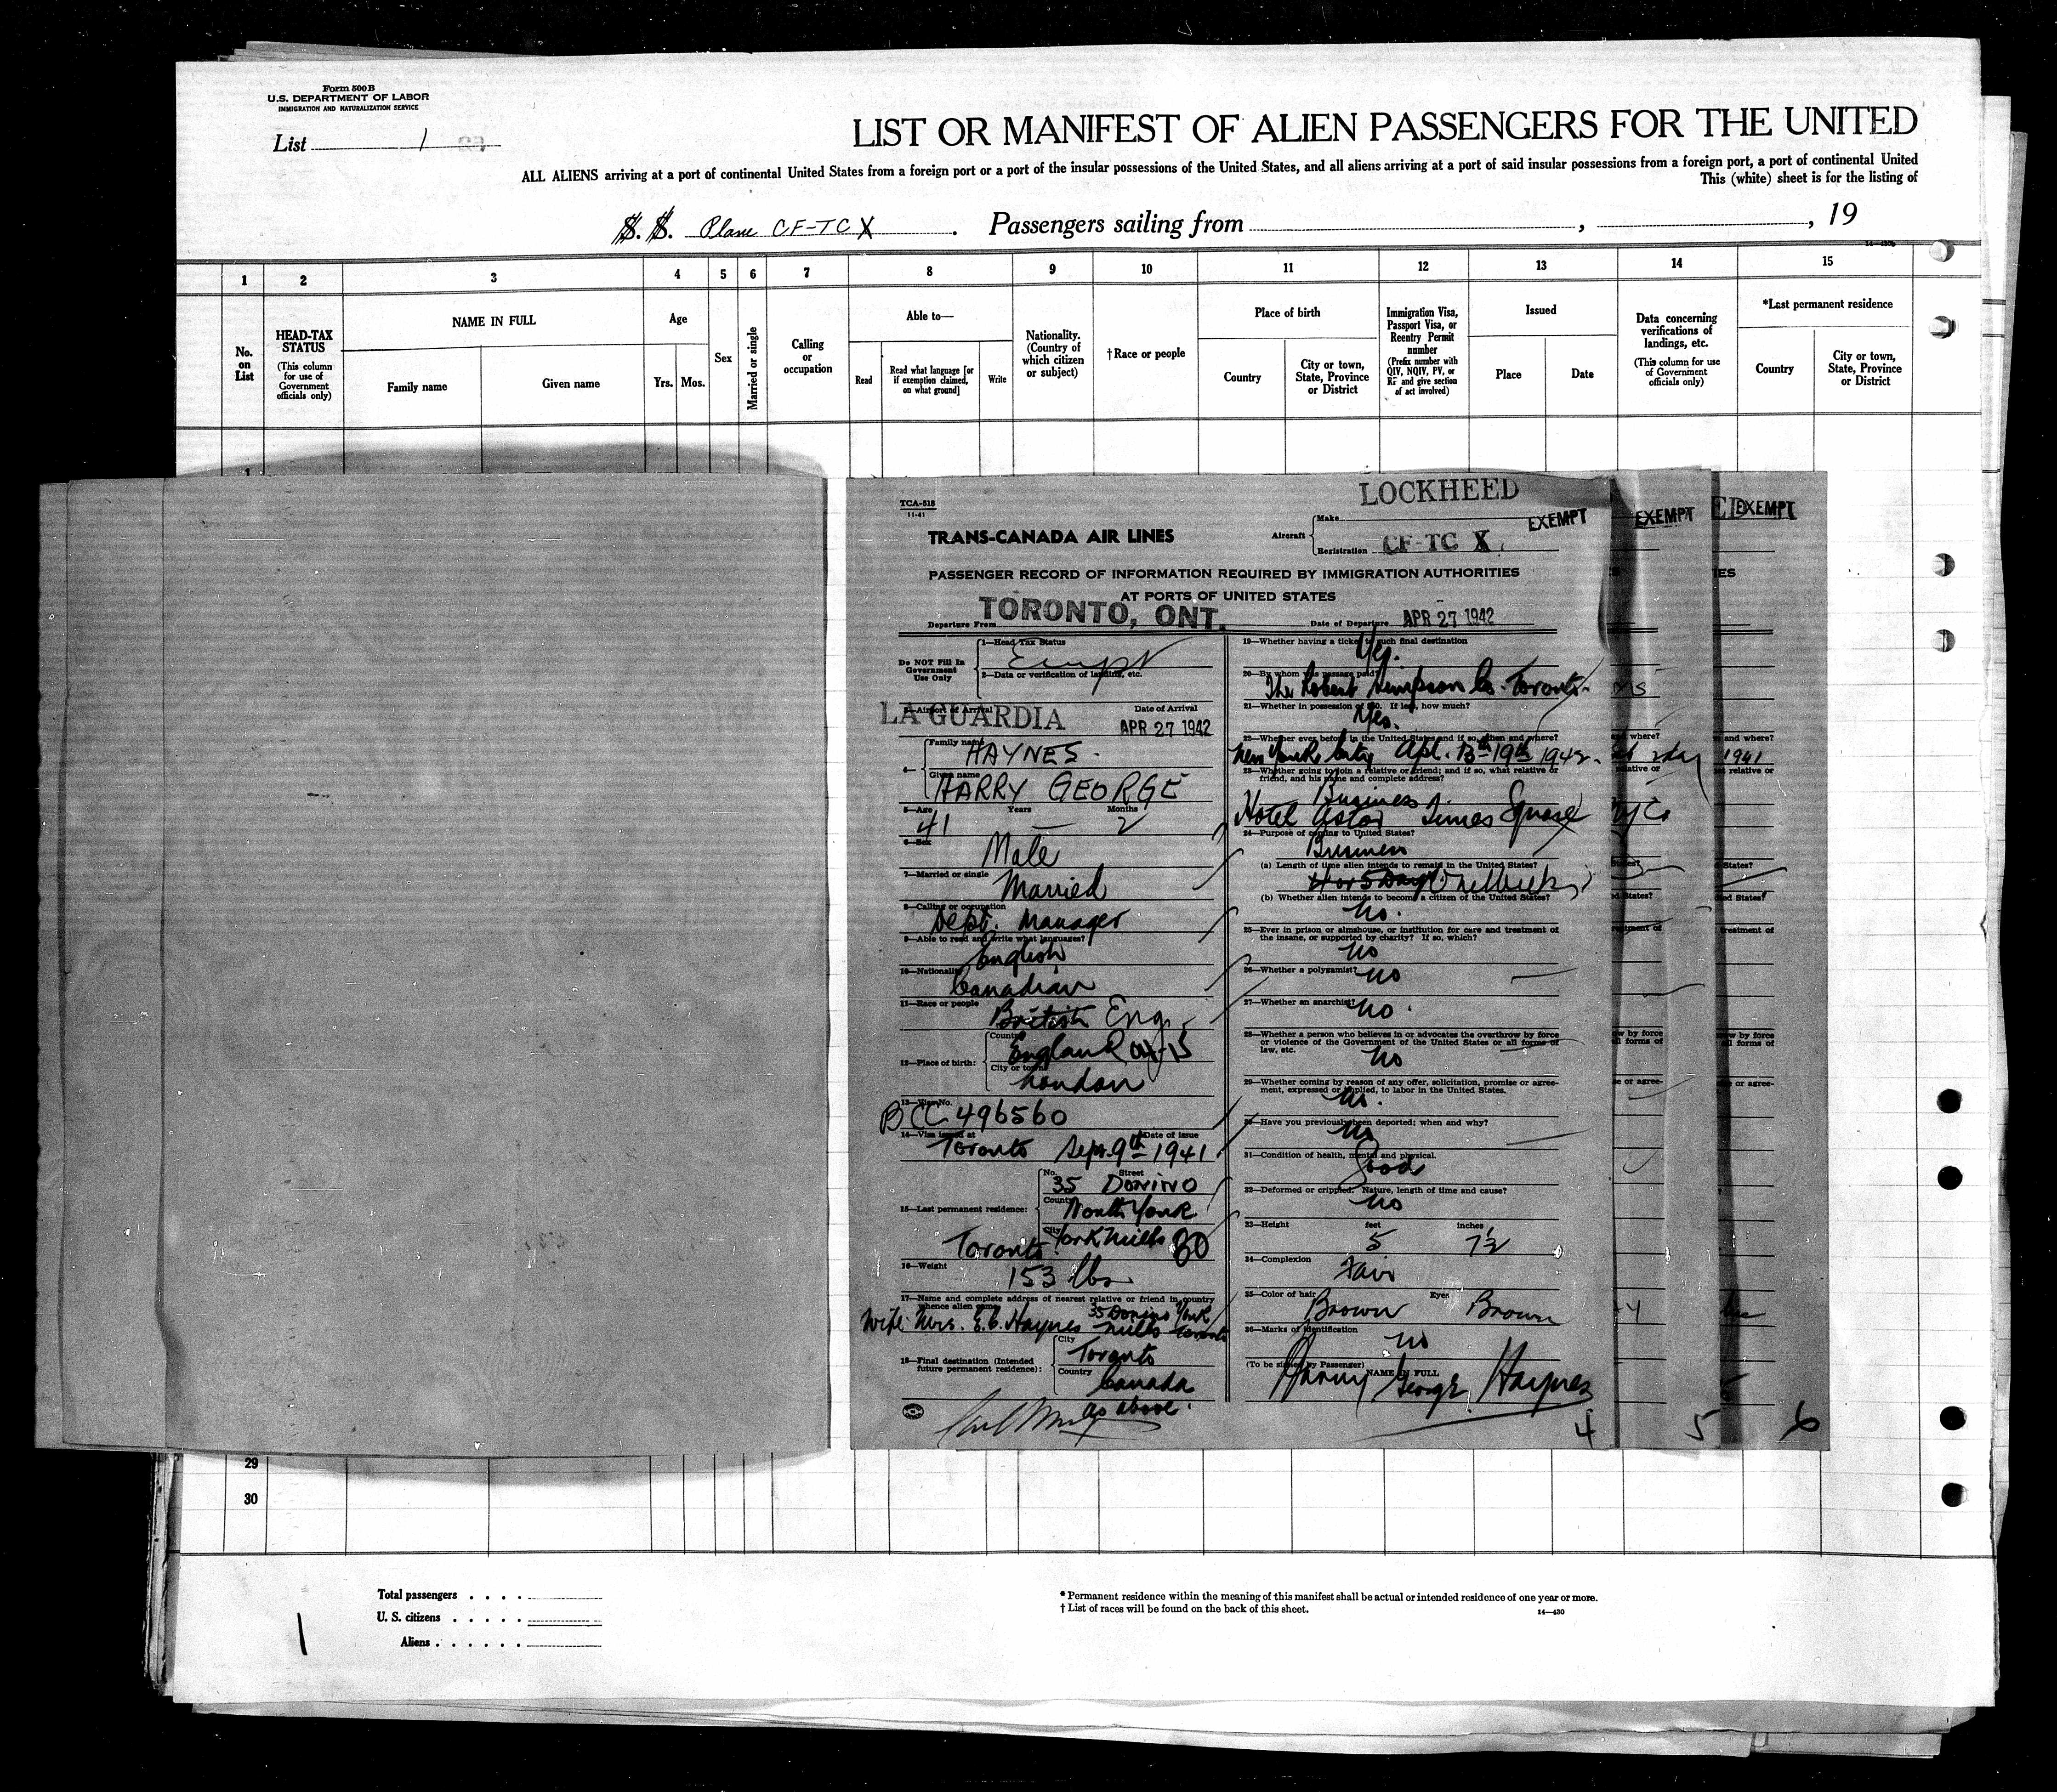 Form 500B
U.S. DEPARTMENT OF LABOR
IMMIGRATION AND NATURALIZATION SERVICE
List 1
LIST OR MANIFEST OF ALIEN PASSENGERS FOR THE UNITED
ALL ALIENS arriving at a port of continental United States from a foreign port or a port of the insular possessions of the United States, and all aliens arriving at a port of said insular possessions from a foreign port, a port of continental United
This (white) sheet is for the listing of
S. S. Plane CF-TCX . Passengers sailing from , , 19
1 2 3 4 5 6 7 8 9 10 11 12 13 14 15
No. on List
HEAD-TAX STATUS
(This column for use of Government officials only)
NAME IN FULL
Family name
Given name
Age
Yrs. Mos.
Sex
Married or single
Calling or occupation
Able to—
Read
Read what language [or if exemption claimed, on what ground]
Write
Nationality. (Country of which citizen or subject)
†Race or people
Place of birth
Country
City or town, State, Province or District
Immigration Visa, Passport Visa, or Reentry Permit number
(Prefix number with QIV, NQIV, PV, or RP and give section of act involved)
Issued
Place
Date
Data concerning verifications of landings, etc.
(This column for use of Government officials only)
*Last permanent residence
Country
City or town, State, Province or District
TCA-518
11-41
LOCKHEED
TRANS-CANADA AIR LINES
Aircraft
Make
Registration CF-TC X
EXEMPT
EXEMPT
EXEMPT
PASSENGER RECORD OF INFORMATION REQUIRED BY IMMIGRATION AUTHORITIES
AT PORTS OF UNITED STATES
Departure From TORONTO, ONT.
Date of Departure APR 27 1942
Do NOT Fill In
Government
Use Only
1—Head Tax Status
Exempt
2—Data or verification of landing, etc.
3—Airport of Arrival LA GUARDIA
Date of Arrival APR 27 1942
4—
Family name HAYNES
Given name HARRY GEORGE
5—Age Years Months
41 2
6—Sex Male
7—Married or single Married
8—Calling or occupation Dept. Manager
9—Able to read and write what languages? English
10—Nationality Canadian
11—Race or people British Eng.
12—Place of birth:
Country England
City or town London
13—Visa No.
BCC 496560
14—Visa issued at Date of issue
Toronto Sept. 9th 1941
15—Last permanent residence:
No. Street
35 Donino
County North York
City York Mills
Toronto 80
16—Weight 153 lbs
17—Name and complete address of nearest relative or friend in country
whence alien came
Wife Mrs. E.C. Haynes 35 Donino York
Mills Toronto
18—Final destination (Intended
future permanent residence):
City Toronto
Country Canada
as above.
19—Whether having a ticket to such final destination
Yes.
20—By whom was passage paid?
The Robert Simpson Co. Toronto.
21—Whether in possession of $50. If less, how much?
Yes.
22—Whether ever before in the United States and if so, when and where?
New York City Apl. 13th-19th 1942.
23—Whether going to join a relative or friend; and if so, what relative or
friend, and his name and complete address?
Business
Hotel Astor Times Square
24—Purpose of coming to United States?
Business
(a) Length of time alien intends to remain in the United States?
4 or 5 Days
(b) Whether alien intends to become a citizen of the United States?
no.
25—Ever in prison or almshouse, or institution for care and treatment of
the insane, or supported by charity? If so, which?
no
26—Whether a polygamist? no
27—Whether an anarchist? no.
28—Whether a person who believes in or advocates the overthrow by force
or violence of the Government of the United States or all forms of
law, etc.
no
29—Whether coming by reason of any offer, solicitation, promise or agree-
ment, expressed or implied, to labor in the United States.
no.
30—Have you previously been deported; when and why?
no
31—Condition of health, mental and physical.
Good
32—Deformed or crippled. Nature, length of time and cause?
no
33—Height feet inches
5 7½
34—Complexion Fair
35—Color of hair Brown Eyes Brown
36—Marks of identification
no
(To be signed by Passenger) NAME IN FULL
Harry George Haynes
4
5
6
IES
and where?
1941
relative or
States?
treatment of
by force
all forms of
or agree-
29
30
Total passengers . . . .
U. S. citizens . . . . .
Aliens . . . . . .
1
* Permanent residence within the meaning of this manifest shall be actual or intended residence of one year or more.
† List of races will be found on the back of this sheet.
14—430